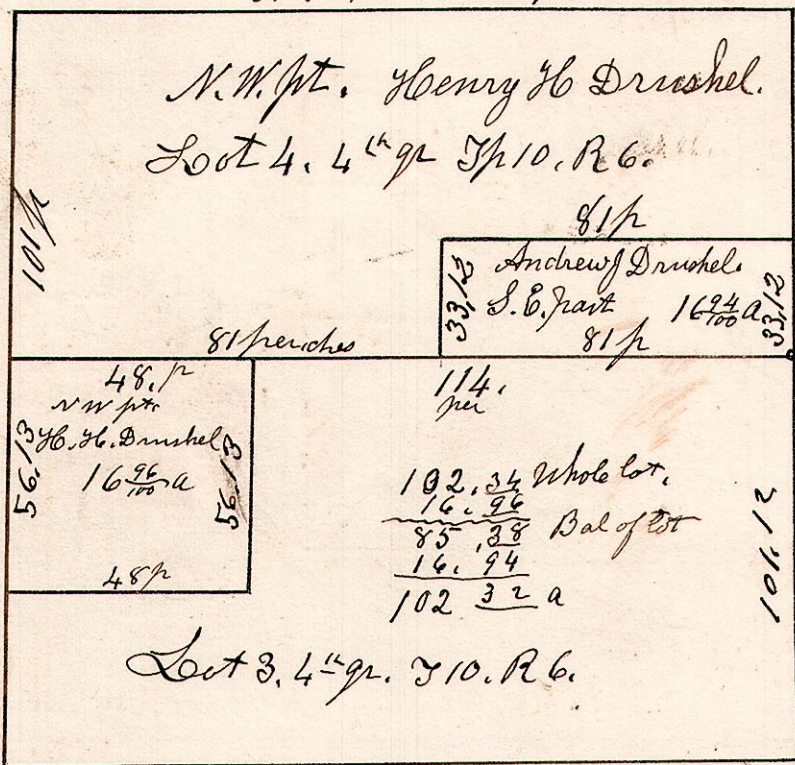 N.W. pt. Henry H Drushel.
Lot 4. 4th qr Tp 10. R 6.
101 p
81 p
33,12
Andrew J Drushel.
S.E. part 16 94/100 a
33,12
81 p
81 perches
48. p
N W pt.
H. H. Drushel
16 96/100 a
56.13
56.13
48 p
114.
per
102.34 Whole lot.
16.96
85.38 Bal of lot
16.94
102 32 a
101.12
Lot 3. 4th qr. T 10. R 6.